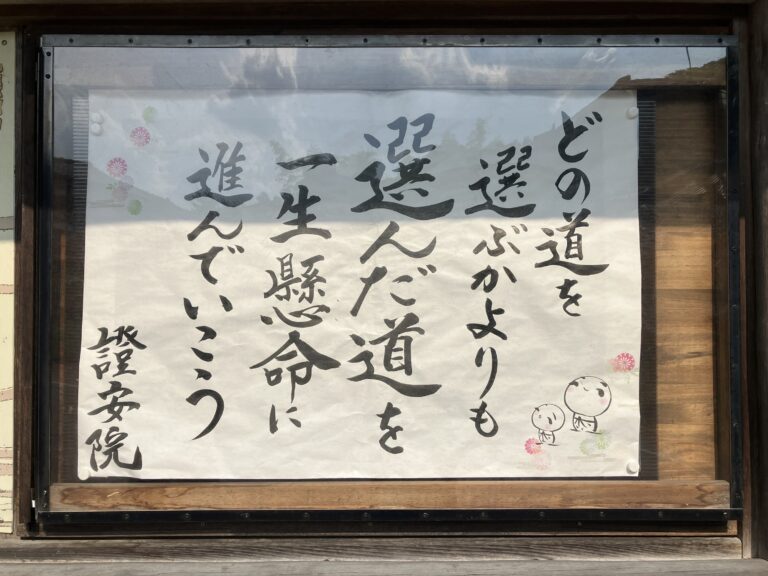 どの道を
選ぶかよりも
選んだ道を
一生懸命に
進んでいこう
證安院